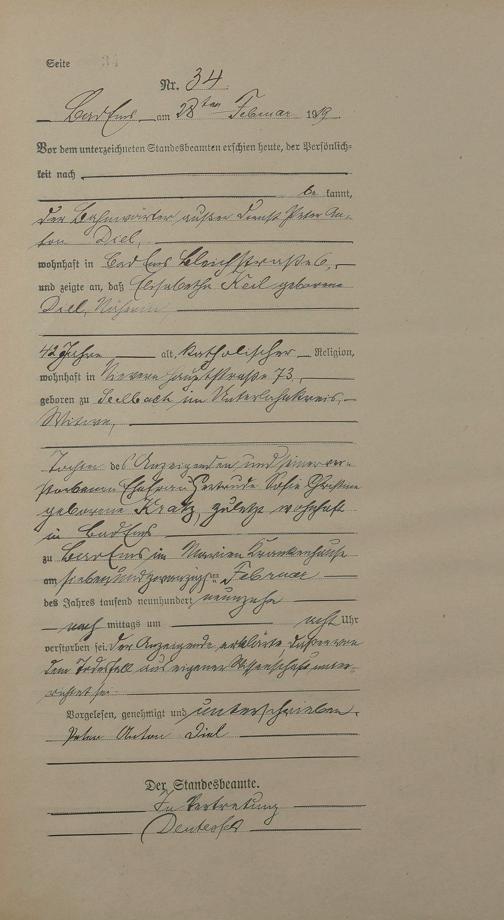 Seite 34
Nr. 34
Bad Ems am 28ten Februar 1919
Vor dem unterzeichneten Standesbeamten erschien heute, der Persönlich-
keit nach
be kannt,
der Bahnwärter außer Dienst Peter An-
ton Diel,
wohnhaft in Bad Ems Bleichstraße 6,
und zeigte an, daß Elisabetha Keil geborene
Diel, Näherin
42 Jahre alt, katholischer Religion,
wohnhaft in Hauptstraße 73,
geboren zu Seelbach im Unterlahnkreis,
Witwe,
Tochter des Anzeigenden und seiner ver-
storbenen Ehefrau Gertrude Sofie Christine
geborene Kratz, zuletzt wohnhaft
in Bad Ems
zu Bad Ems im Marien Krankenhause
am siebenundzwanzigsten Februar
des Jahres tausend neunhundert neunzehn
nach mittags um acht Uhr
verstorben sei. Der Anzeigende erklärte, daß er von
dem Todesfall aus eigener Wissenschaft unter-
richtet sei.
Vorgelesen, genehmigt und unterschrieben.
Peter Anton Diel
Der Standesbeamte.
In Vertretung